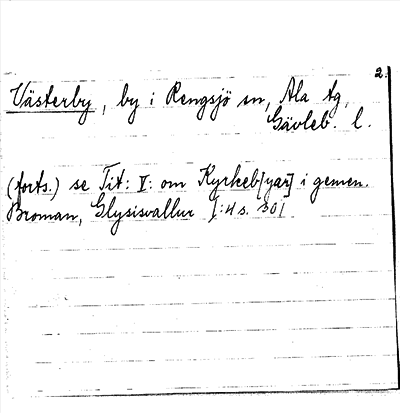 2.
Västerby, by i Rengsjö sn, Ala tg,
Gävleb. l.
(forts.) se Tit: V: om Kyrkeb[yar] i gemen.
Broman, Glysisvallur [: 4 s. 30]